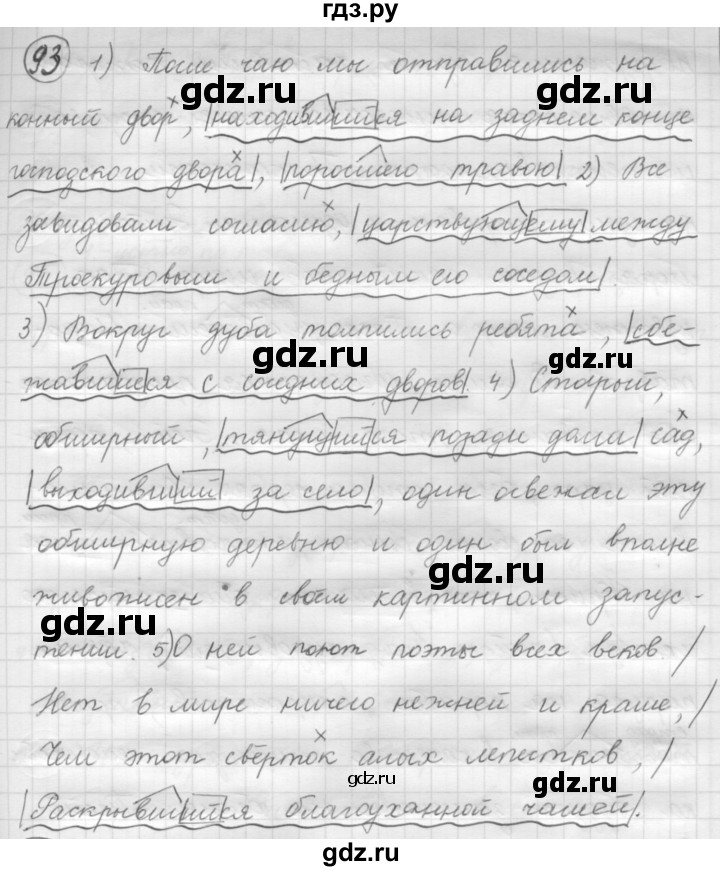 гдз.ру
93 1) После чаю мы отправились на
конный двор, |находившийся на заднем конце
господского двора|, |поросшего травою| 2) Все
завидовали согласию, |царствующему между
Троекуровым и бедным его соседом|.
3) Вокруг дуба толпились ребята, |сбе-
жавшиеся с соседних дворов|. 4) Старый,
обширный, |тянущийся позади дома| сад,
|выходивший за село|, один освежал эту
обширную деревню и один был вполне
живописен в своем картинном запус-
тении. 5) О ней поют поэты всех веков. /
Нет в мире ничего нежней и краше, /
Чем этот свёрток алых лепестков, /
|Раскрывшийся благоуханной чашей|.
gdz.ru
gdz.ru
gdz.ru
gdz.ru
gdz.ru
gdz.ru
gdz.ru
gdz.ru
gdz.ru
gdz.ru
gdz.ru
gdz.ru